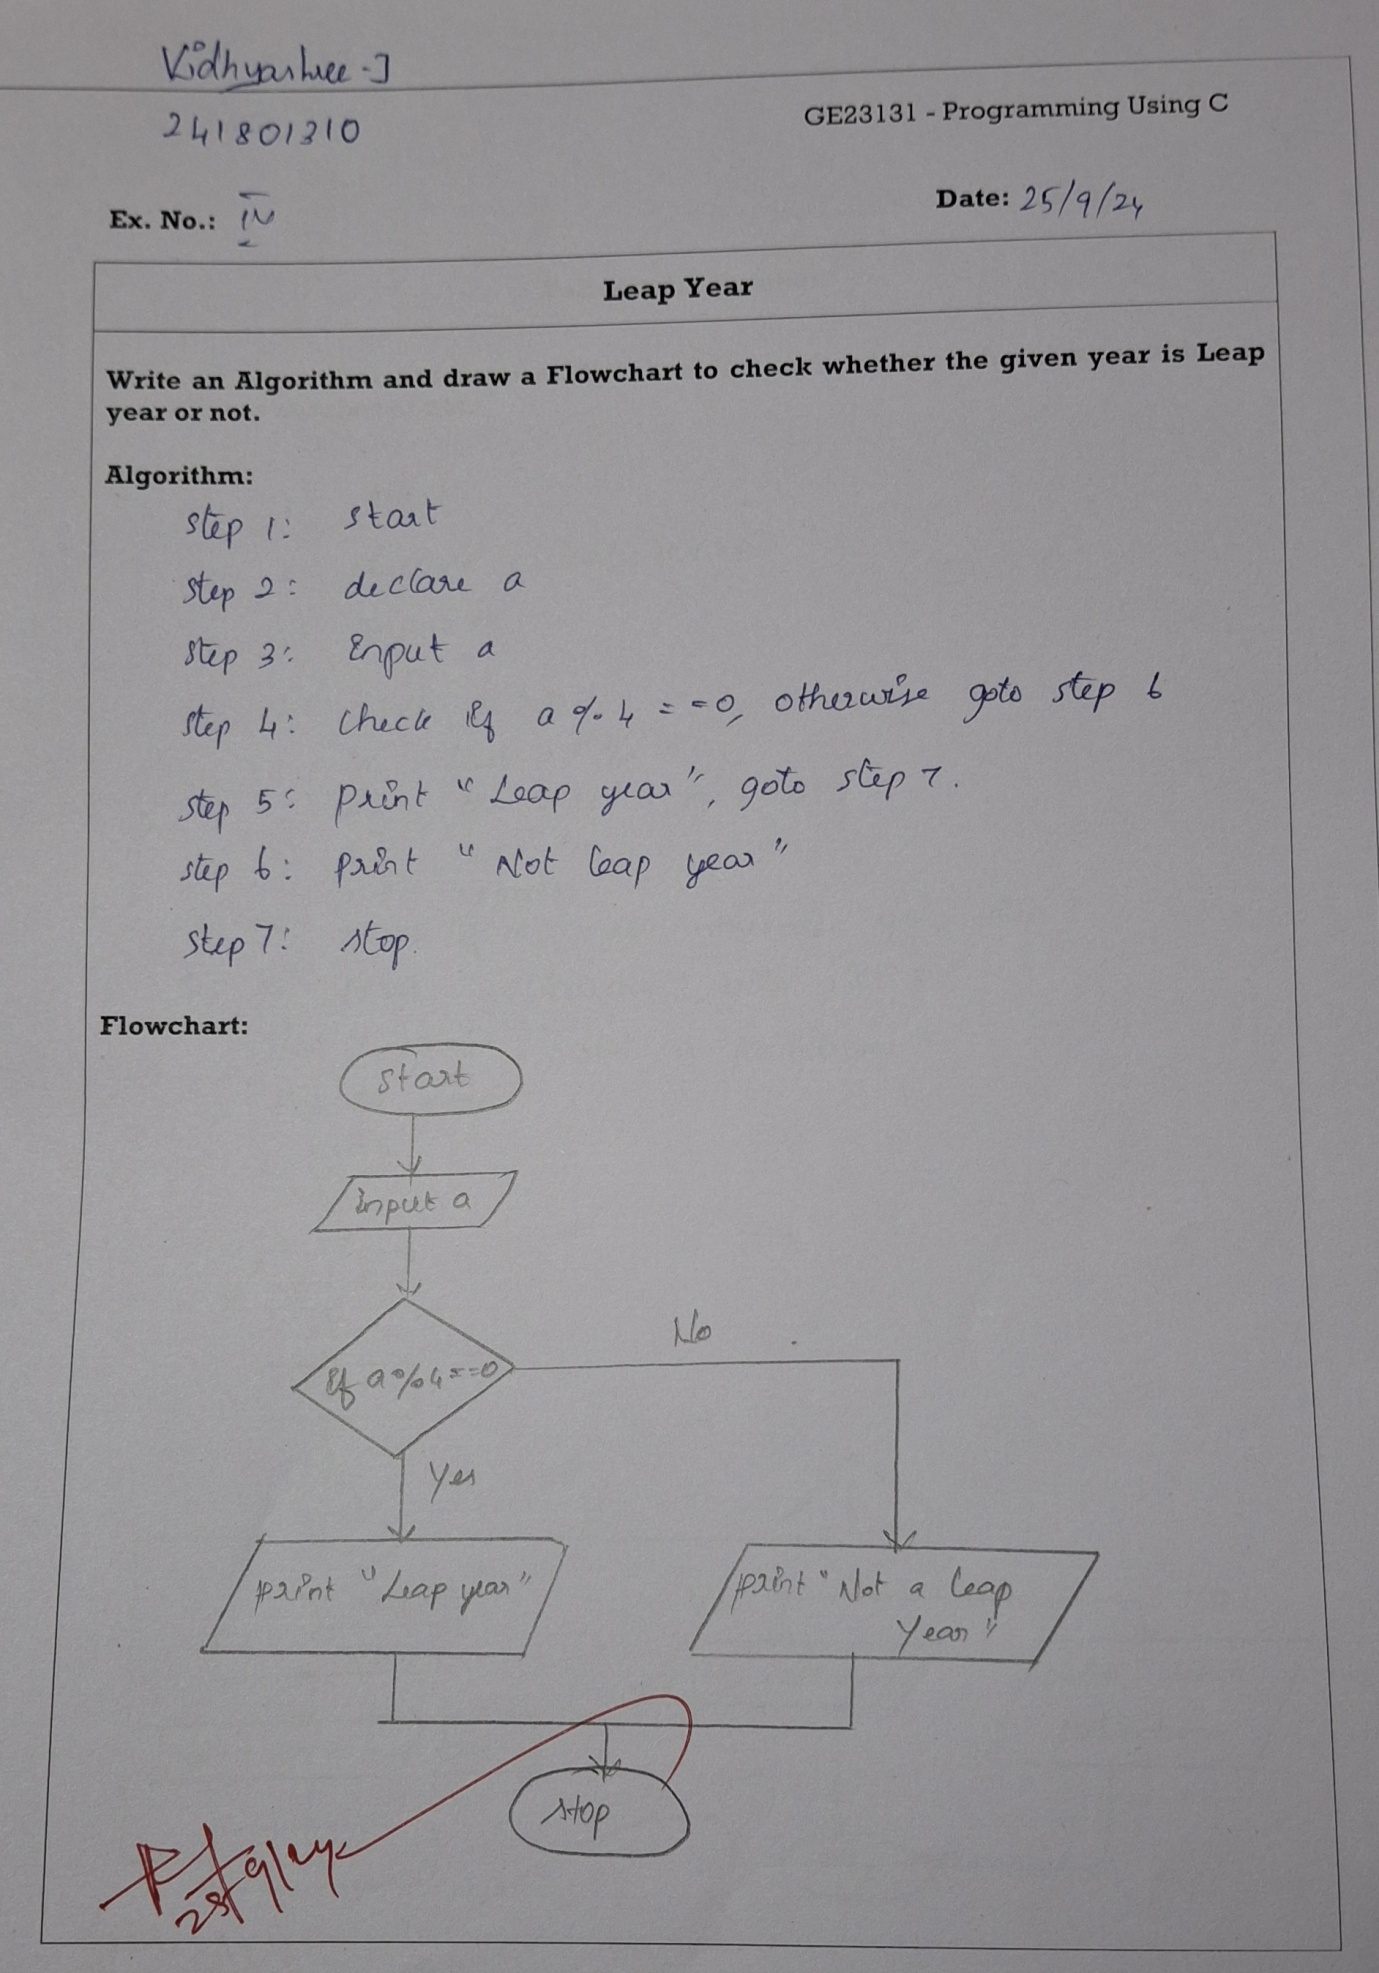 Vidhyashree - J
241801310
GE23131 - Programming Using C
Ex. No.: IV
Date: 25/9/24
Leap Year
Write an Algorithm and draw a Flowchart to check whether the given year is Leap
year or not.
Algorithm:
step 1: start
step 2: declare a
step 3: Input a
step 4: check if a % 4 == 0, otherwise goto step 6
step 5: print "Leap year", goto step 7.
step 6: print "Not leap year"
step 7: stop.
Flowchart:
start
input a
No
if a%4==0
Yes
print "Leap year"
print "Not a leap
Year"
stop
25/9/24